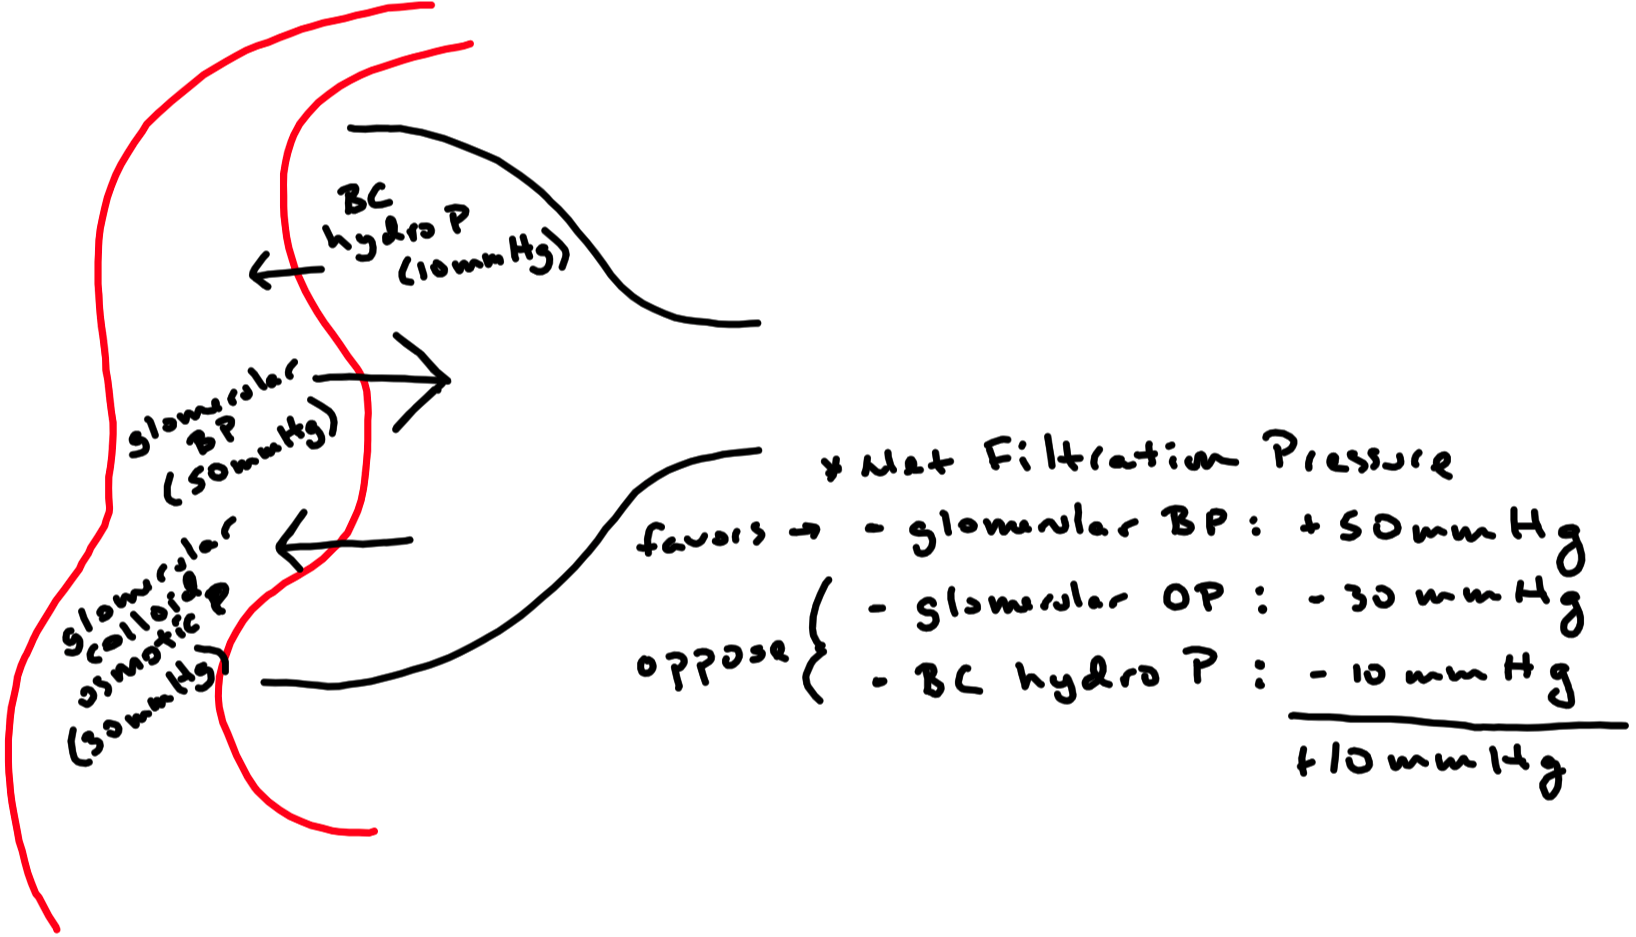 BC
hydro P
(10mmHg)
glomerular
BP
(50mmHg)
glomerular
colloid
osmotic P
(30mmHg)
* Net Filtration Pressure
favors → - glomerular BP: +50mmHg
oppose { - glomerular OP: -30mmHg
- BC hydro P: -10mmHg
+10mmHg